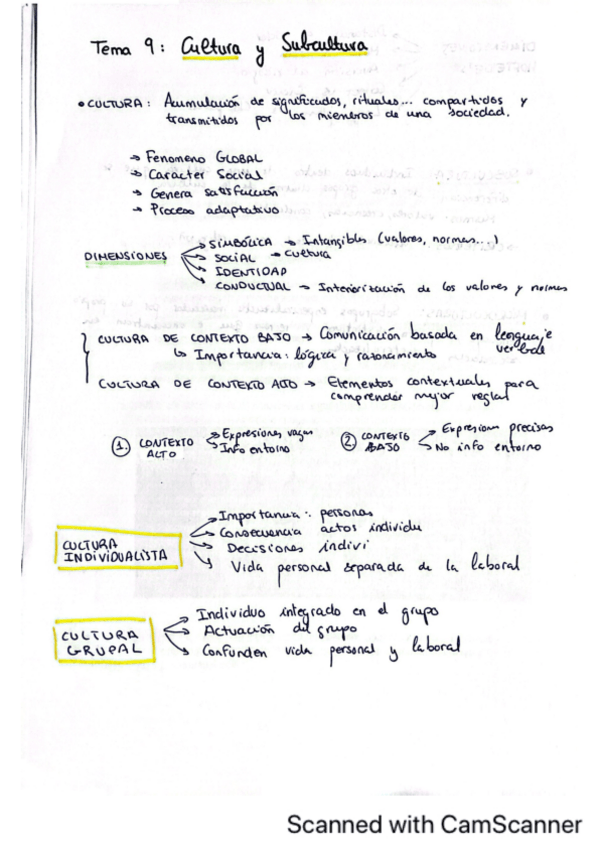 Tema 9: Cultura y Subcultura
• CULTURA: Acumulación de significados, rituales... compartidos y
transmitidos por los miembros de una sociedad.
→ Fenomeno GLOBAL
→ Caracter Social
→ Genera satisfacción
→ Proceso adaptativo
DIMENSIONES
→ SIMBÓLICA → Intangibles (valores, normas...)
→ SOCIAL → Cultura
→ IDENTIDAD
→ CONDUCTUAL → Interiorización de los valores y normas
CULTURA DE CONTEXTO BAJO → Comunicación basada en lenguaje
verbal
↳ Importancia: lógica y razonamiento
CULTURA DE CONTEXTO ALTO → Elementos contextuales para
comprender mejor reglas
1. CONTEXTO ALTO
→ Expresiones vagas
→ Info entorno
2. CONTEXTO BAJO
→ Expresiones precisas
→ No info entorno
CULTURA
INDIVIDUALISTA
→ Importancia: personas
→ Consecuencia actos individu
→ Decisiones indivi
→ Vida personal separada de la laboral
CULTURA
GRUPAL
→ Individuo integrado en el grupo
→ Actuación del grupo
→ Confunden vida personal y laboral
Scanned with CamScanner